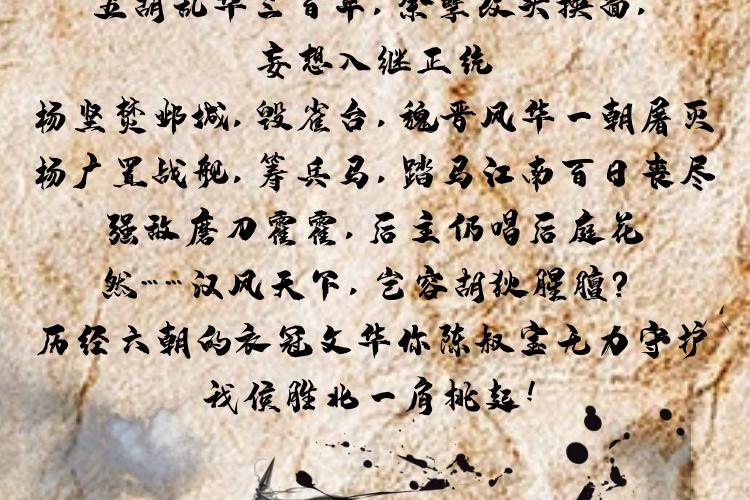 五胡乱华三百年，余孽改头换面，
妄想入继正统
杨坚焚邺城，毁雀台，魏晋风华一朝屠灭
杨广置战舰，筹兵马，踏马江南百日丧尽
强敌磨刀霍霍，后主仍唱后庭花
然……汉风天下，岂容胡狄腥膻？
历经六朝的衣冠文华你陈叔宝无力守护
我侯胜北一肩挑起！